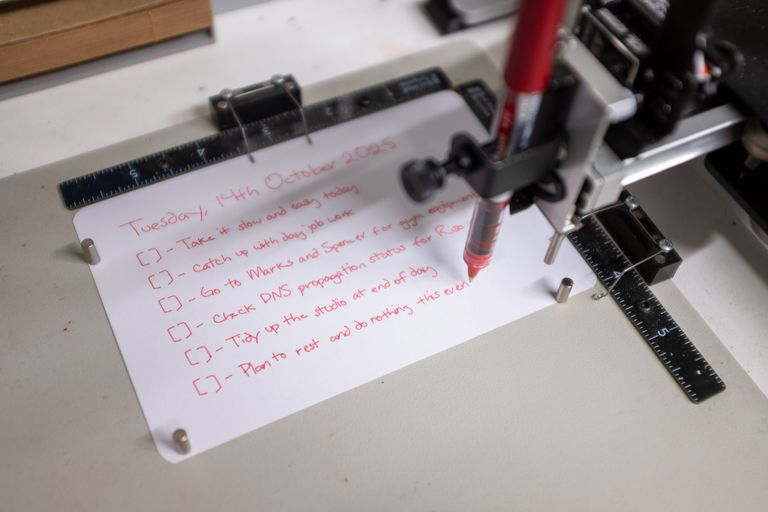 Tuesday, 14th October 2025
[] - Take it slow and easy today
[] - Catch up with day job work
[] - Go to Marks and Spencer for gym equipment
[] - Check DNS propagation status for
[] - Tidy up the studio at end of day
[] - Plan to rest and do nothing this even